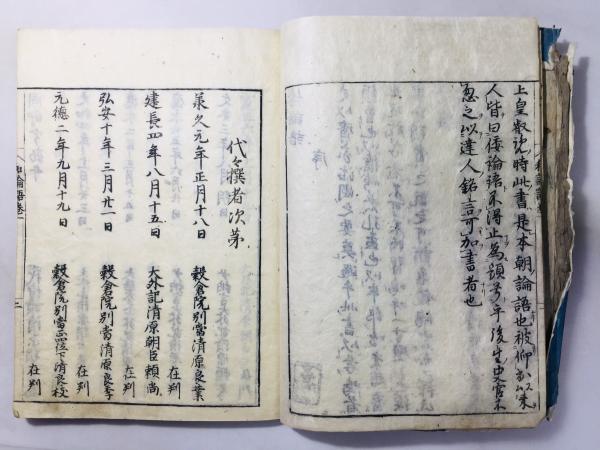 上皇叡覧時此書是本朝論語也被仰
人皆曰倭論語不得止為題多年後生史官
忽之以達人銘言可加書者也
序
代々撰者次第
承久元年正月十八日
穀倉院別當清原良業
在判
建長四年八月十五日
大外記清原朝臣頼尚
在判
弘安十年三月廿一日
穀倉院別當清原良季
在判
元徳二年九月十九日
穀倉院別當正四位下清原良枝
在判
和論語巻一